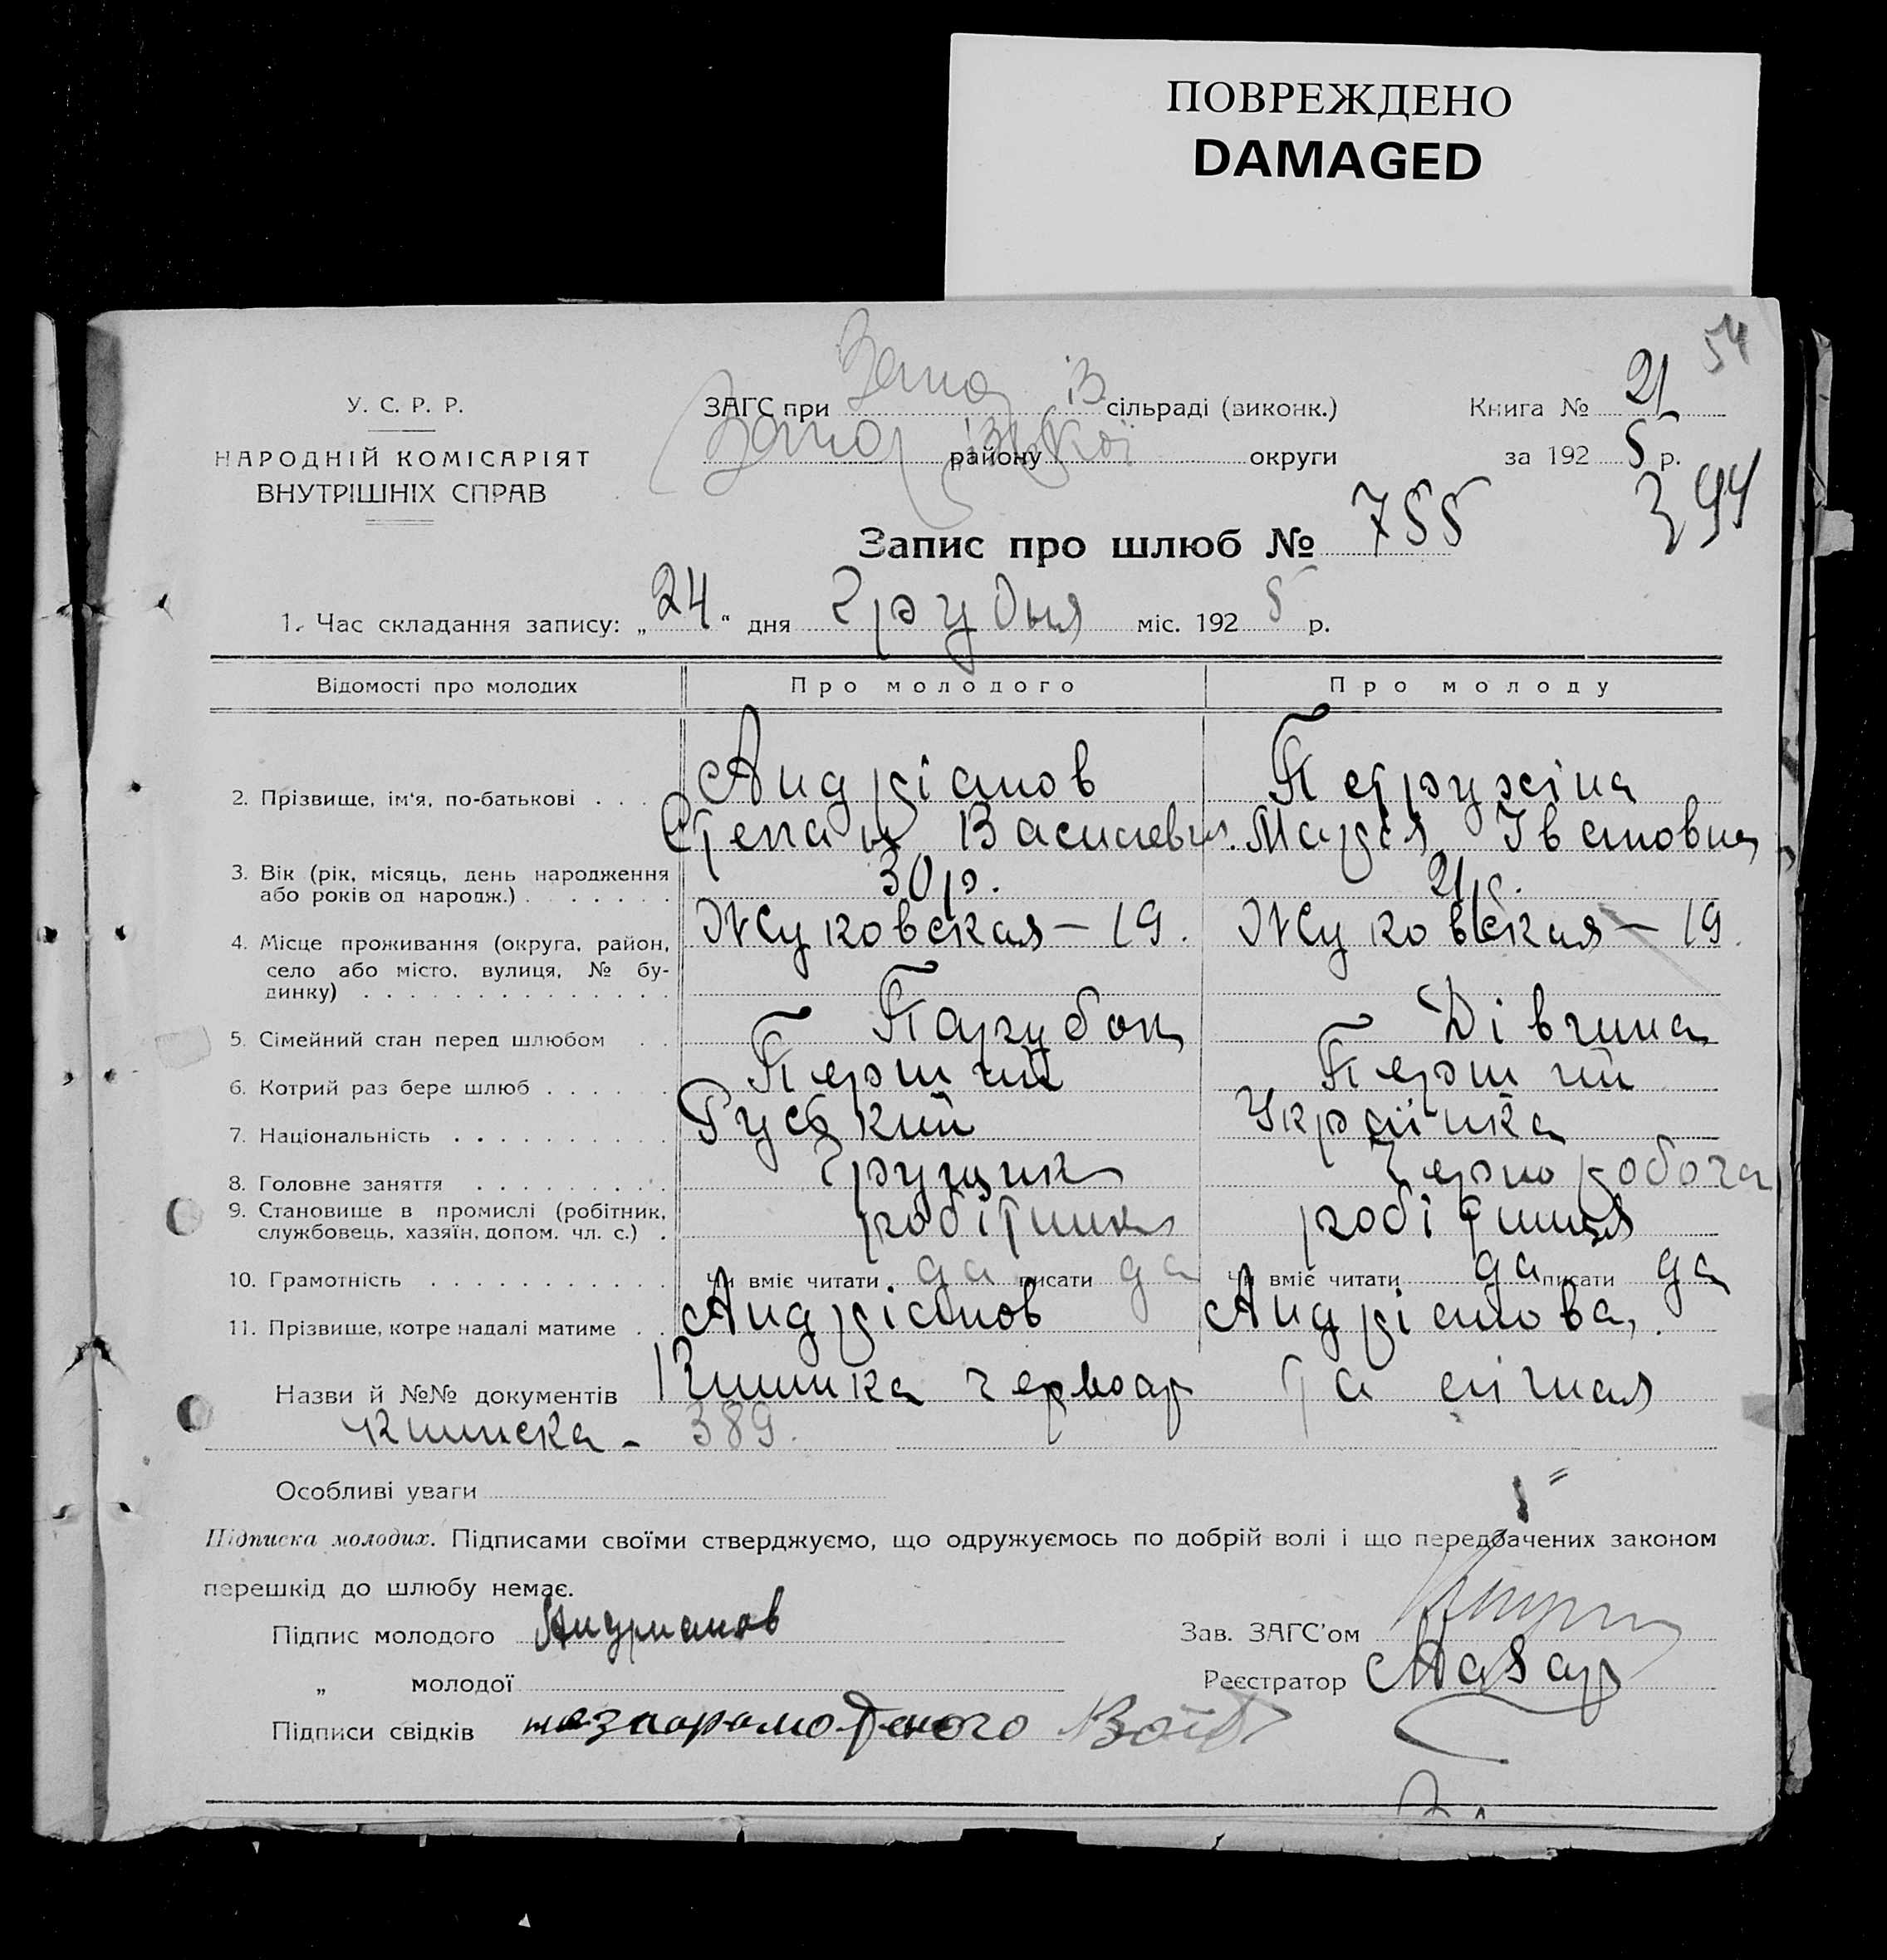 ПОВРЕЖДЕНО
DAMAGED
54
У. С. Р. Р.
НАРОДНІЙ КОМІСАРІЯТ
ВНУТРІШНІХ СПРАВ
ЗАГС при сільраді (виконк.)
району округи
Книга № 21
за 1925 р.
394
Запис про шлюб № 755
1. Час складання запису: „24“ дня Грудня міс. 1925 р.
Відомості про молодих Про молодого Про молоду
2. Прізвище, ім'я, по-батькові . . . Андріанов Петрухіна
Степан Василевич. Марія Івановна
3. Вік (рік, місяць, день народження або років од народж.) . . . . . . . 30 р. 21 р.
4. Місце проживання (округа, район, село або місто, вулиця, № будинку) . . . . . . . . . . . . . . Жуковская – 19. Жуковская – 19.
5. Сімейний стан перед шлюбом . . Парубок Дівчина
6. Котрий раз бере шлюб . . . . . . Перший Перший
7. Національність . . . . . . . . . . Руський Українка
8. Головне заняття . . . . . . . . . Грущик Чернробоча
9. Становище в промислі (робітник, службовець, хазяїн, допом. чл. с.) . робітник робітниця
10. Грамотність . . . . . . . . . . . Чи вміє читати да писати да Чи вміє читати да писати да
11. Прізвище, котре надалі матиме . . Андріанов Андріанова
Назви й №№ документів Книжка червоар та
книжка – 389.
Особливі уваги
Підписка молодих. Підписами своїми стверджуємо, що одружуємось по добрій волі і що передбачених законом
перешкід до шлюбу немає.
Підпис молодого Андрианов
Зав. ЗАГС'ом
„ молодої
Реєстратор
Підписи свідків